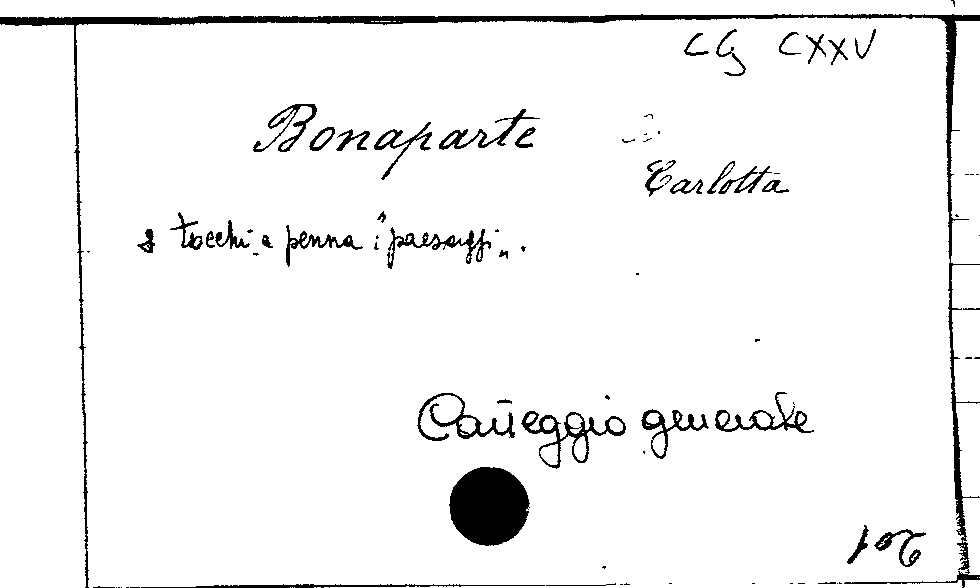 CG CXXV
Bonaparte
Carlotta
tocchi a penna "paesaggi".
Carteggio generale
201